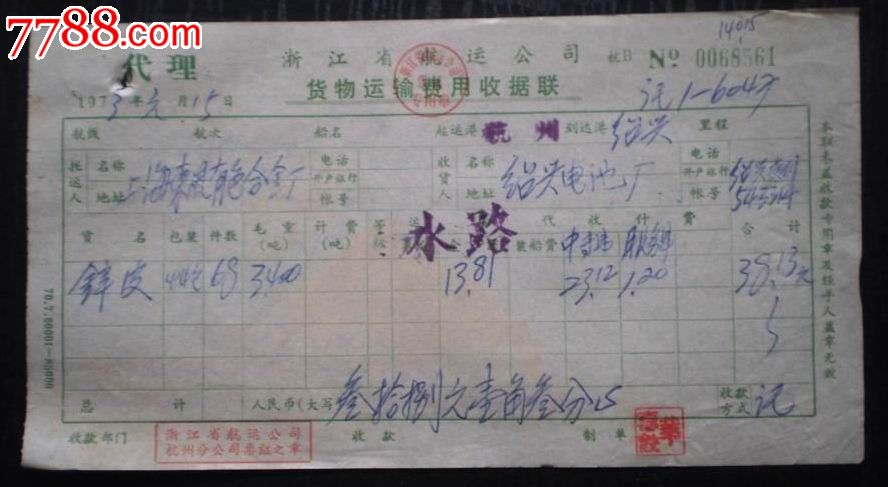 7788.com
中国收藏热线
14015
代理 浙江省航运公司 杭B No 0068561
货物运输费用收据联
专用章
1973年元月15日 记1-6047
航线 航次 船名 起运港 杭州 到达港 绍兴 里程
托运人 名称 上海 有色合金厂 电话 收货人 名称 绍兴电池厂 电话
地址 开户银行 地址 开户银行
帐号 帐号
货名 包装 件数 毛重(吨) 计费(吨) 等级 水路 代收什费 合计
装船费 中转 服务
锌皮 68 3.400 13.81 23.12 1.20 38.13元
总计 人民币(大写) 叁拾捌元壹角叁分 收款方式 记
收款部门 浙江省航运公司 收款 制单
杭州分公司 之章
本联未盖收款专用章及经手人盖章无效
70.7.80001—85000